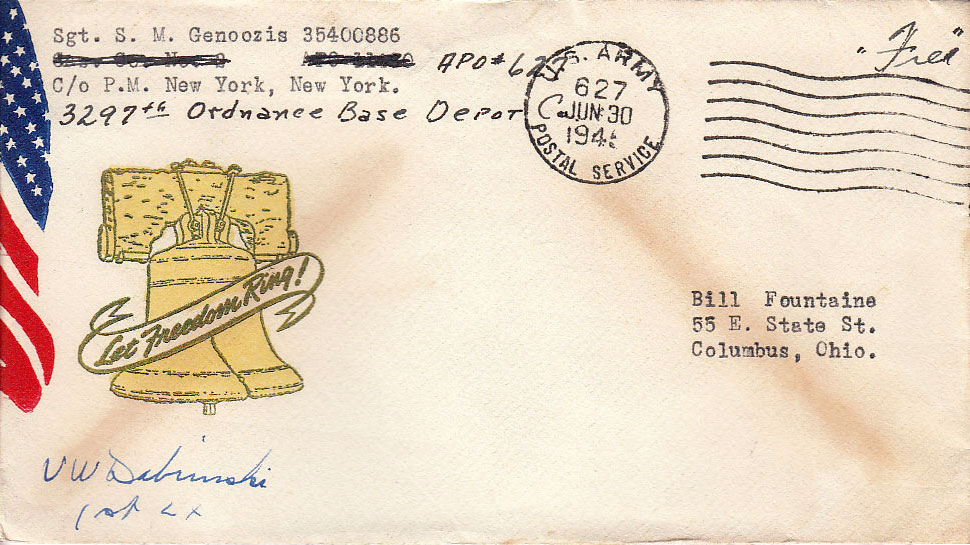 Sgt. S. M. Genoozis 35400886
APO # 627
C/o P.M. New York, New York.
3297th Ordnance Base Depot
U.S. ARMY
627
JUN 30
194
POSTAL SERVICE
"Free"
Let Freedom Ring!
Bill Fountaine
55 E. State St.
Columbus, Ohio.
V W Dabrinski
1st Lt